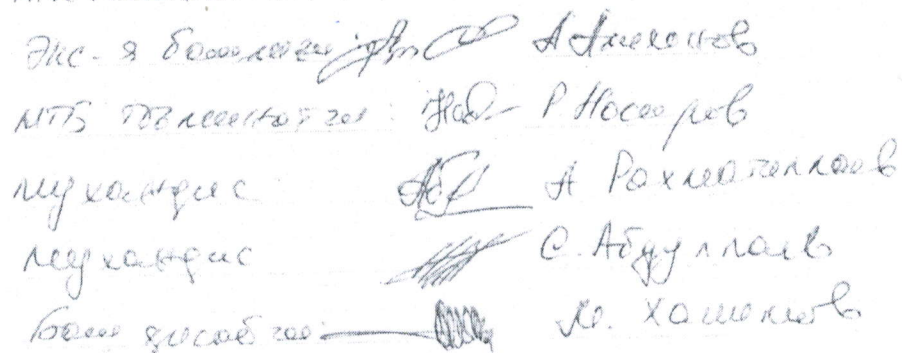 Экс-я бошлиғи: А Алихонов
МТБ таъминотчи: Р Носиров
Муҳандис А Рахматиллаев
Муҳандис С. Абдуллаев
Бош ҳисобчи: М. Хошимов